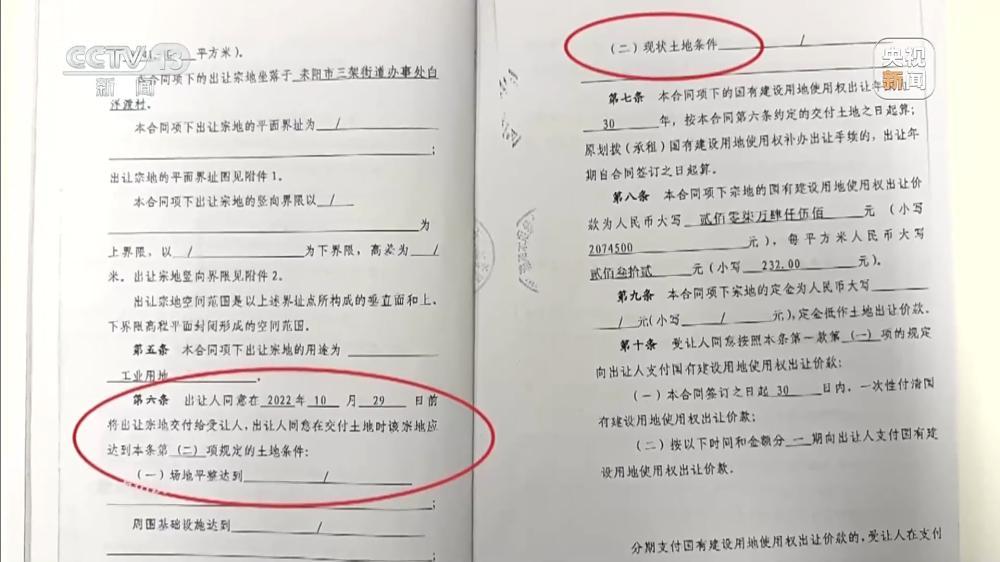 CCTV-13
新闻
央视
新闻
平方米）。
本合同项下的出让宗地坐落于 耒阳市三架街道办事处白
洋渡村.
本合同项下出让宗地的平面界址为 /
;
出让宗地的平面界址图见附件1。
本合同项下出让宗地的竖向界限以 /
为
上界限，以 / 为下界限，高差为 /
米。出让宗地竖向界限见附件2。
出让宗地空间范围是以上述界址点所构成的垂直面和上、
下界限高程平面封闭形成的空间范围。
第五条 本合同项下出让宗地的用途为
工业用地 。
第六条 出让人同意在 2022 年 10 月 29 日前
将出让宗地交付给受让人，出让人同意在交付土地时该宗地应
达到本条第 (二) 项规定的土地条件：
（一）场地平整达到 /
;
周围基础设施达到 /
;
（二）现状土地条件 /
第七条 本合同项下的国有建设用地使用权出让年
30 年，按本合同第六条约定的交付土地之日起算；
原划拨（承租）国有建设用地使用权补办出让手续的，出让年
期自合同签订之日起算。
第八条 本合同项下宗地的国有建设用地使用权出让价
款为人民币大写 贰佰零柒万肆仟伍佰 元（小写
2074500 元），每平方米人民币大写
贰佰叁拾贰 元（小写 232.00 元）。
第九条 本合同项下宗地的定金为人民币大写
/ 元（小写 / 元），定金抵作土地出让价款。
第十条 受让人同意按照本条第一款第 (一) 项的规定
向出让人支付国有建设用地使用权出让价款：
（一）本合同签订之日起 30 日内，一次性付清国
有建设用地使用权出让价款；
（二）按以下时间和金额分 一 期向出让人支付国有建
设用地使用权出让价款.
分期支付国有建设用地使用权出让价款的，受让人在支付